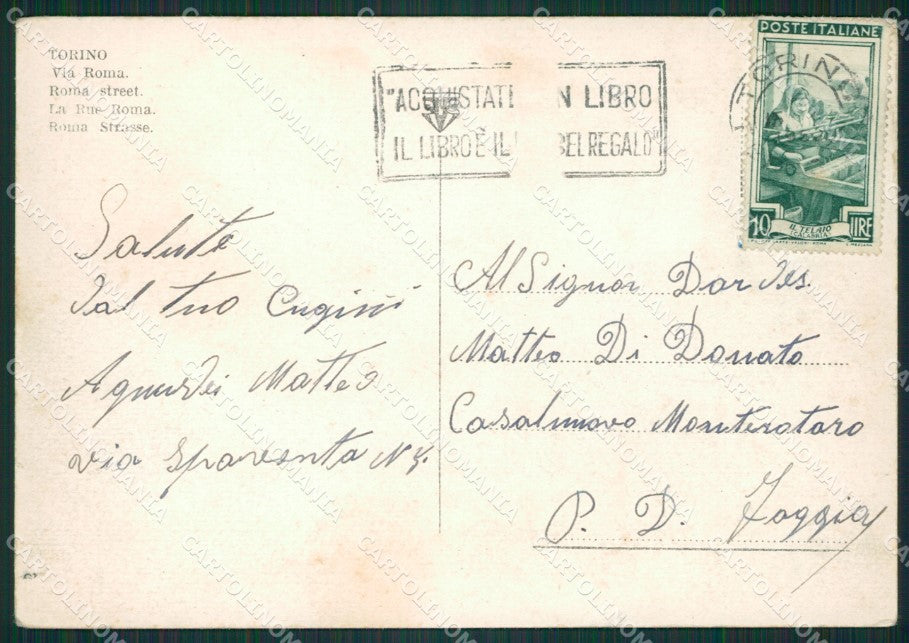 TORINO
Via Roma.
Roma street.
La Rue Roma.
Roma Strasse.
"ACQUISTATE UN LIBRO
IL LIBRO È IL BEL REGALO"
TORINO
POSTE ITALIANE
10 LIRE
IL TELAIO
CALABRIA
Salute
dal tuo Cugini
Agnusdei Matteo
via Spaventa N
Al Signor
Matteo Di Donato
Casalnuovo Monterotaro
P. D. Foggia
CARTOLINOMANIA